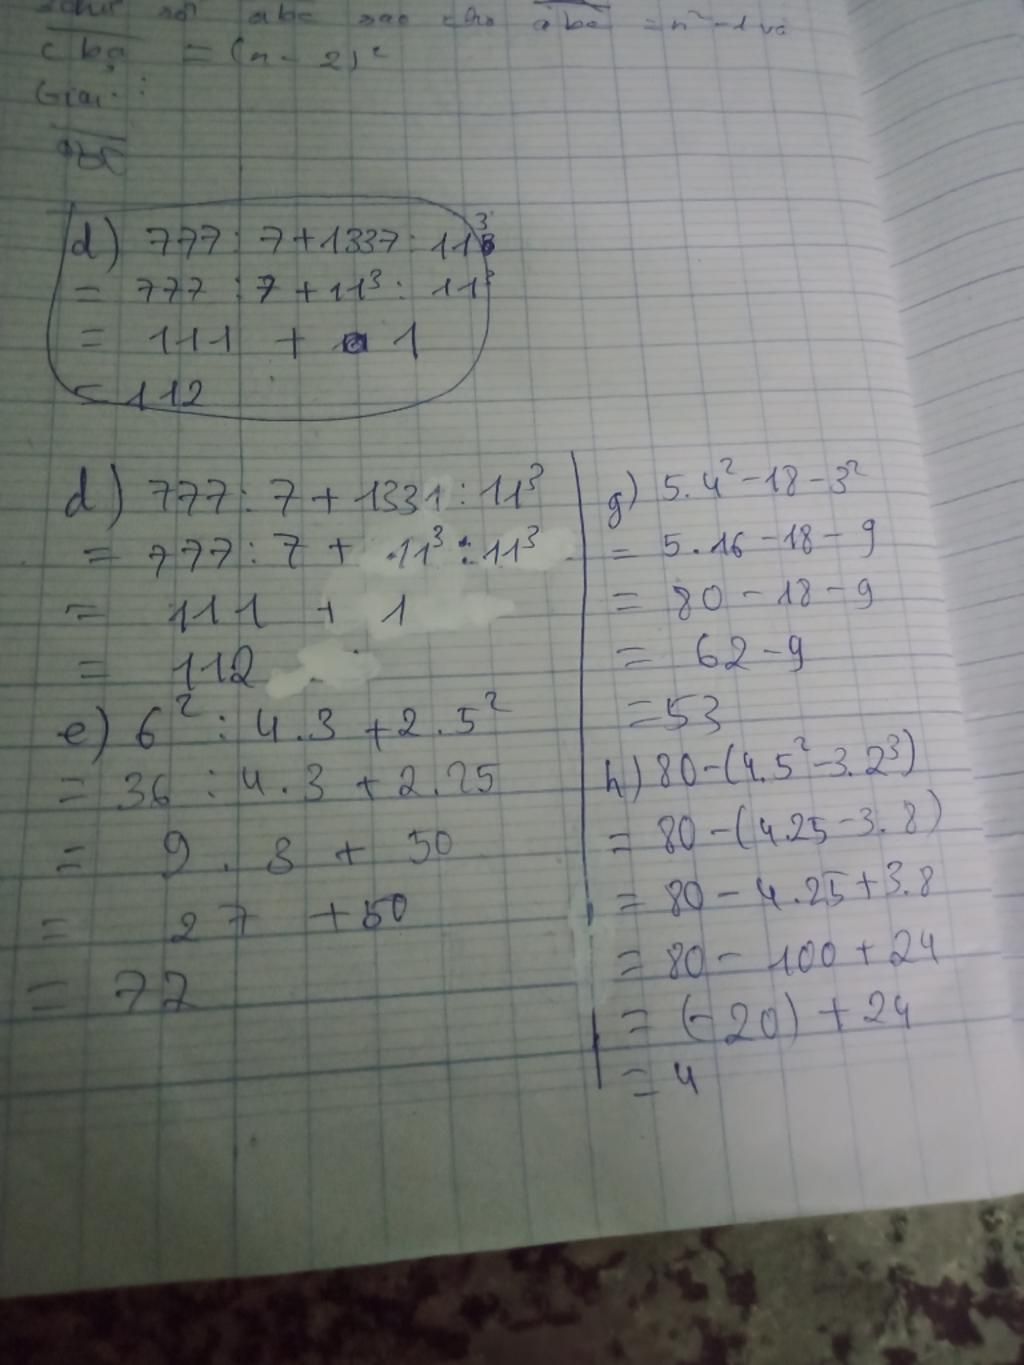 số abc sao cho abc = n² - 1 và
cba = (n - 2)²
Giải:
d) 777 : 7 + 1337 : 11³
= 777 : 7 + 11³ : 11³
= 111 + 1
= 112
d) 777 : 7 + 1331 : 11³
= 777 : 7 + 11³ : 11³
= 111 + 1
= 112
e) 6² : 4 . 3 + 2 . 5²
= 36 : 4 . 3 + 2 . 25
= 9 . 3 + 50
= 27 + 50
= 77
g) 5 . 4² - 18 - 3²
= 5 . 16 - 18 - 9
= 80 - 18 - 9
= 62 - 9
= 53
h) 80 - (4 . 5² - 3 . 2³)
= 80 - (4 . 25 - 3 . 8)
= 80 - 4 . 25 + 3 . 8
= 80 - 100 + 24
= (-20) + 24
= 4